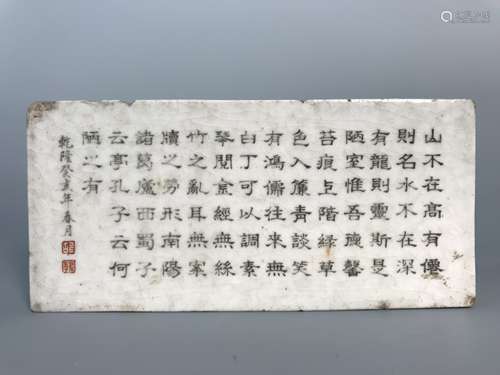 山不在高有僊
則名水不在深
有龍則靈斯是
陋室惟吾德馨
苔痕上階綠草
色入簾青談笑
有鴻儒往來無
白丁可以調素
琴閱金經無絲
竹之亂耳無案
牘之勞形南陽
諸葛廬西蜀子
云亭孔子云何
陋之有
乾隆癸亥年春月